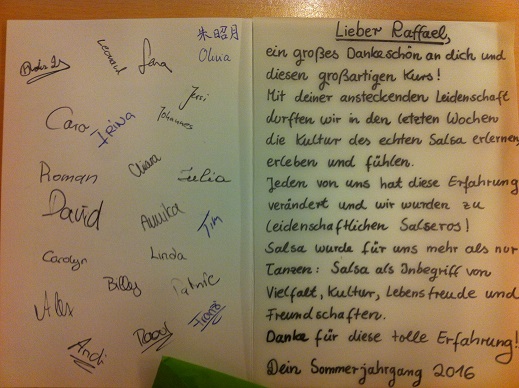 朱昭月
Leonard
Lena
Olivia
Jessi
Johannes
Caro
Irina
Chiara
Julia
Roman
David
Annika
Tim
Linda
Carolyn
Billy
Alex
Andi
Raoul
Lieber Raffael,
ein großes Dankeschön an dich und
diesen großartigen Kurs!
Mit deiner ansteckenden Leidenschaft
durften wir in den letzten Wochen
die Kultur des echten Salsa erlernen,
erleben und fühlen.
Jeden von uns hat diese Erfahrung
verändert und wir wurden zu
leidenschaftlichen Salseros!
Salsa wurde für uns mehr als nur
Tanzen: Salsa als Inbegriff von
Vielfalt, Kultur, Lebensfreude und
Freundschaften.
Danke für diese tolle Erfahrung!
Dein Sommerjahrgang 2016